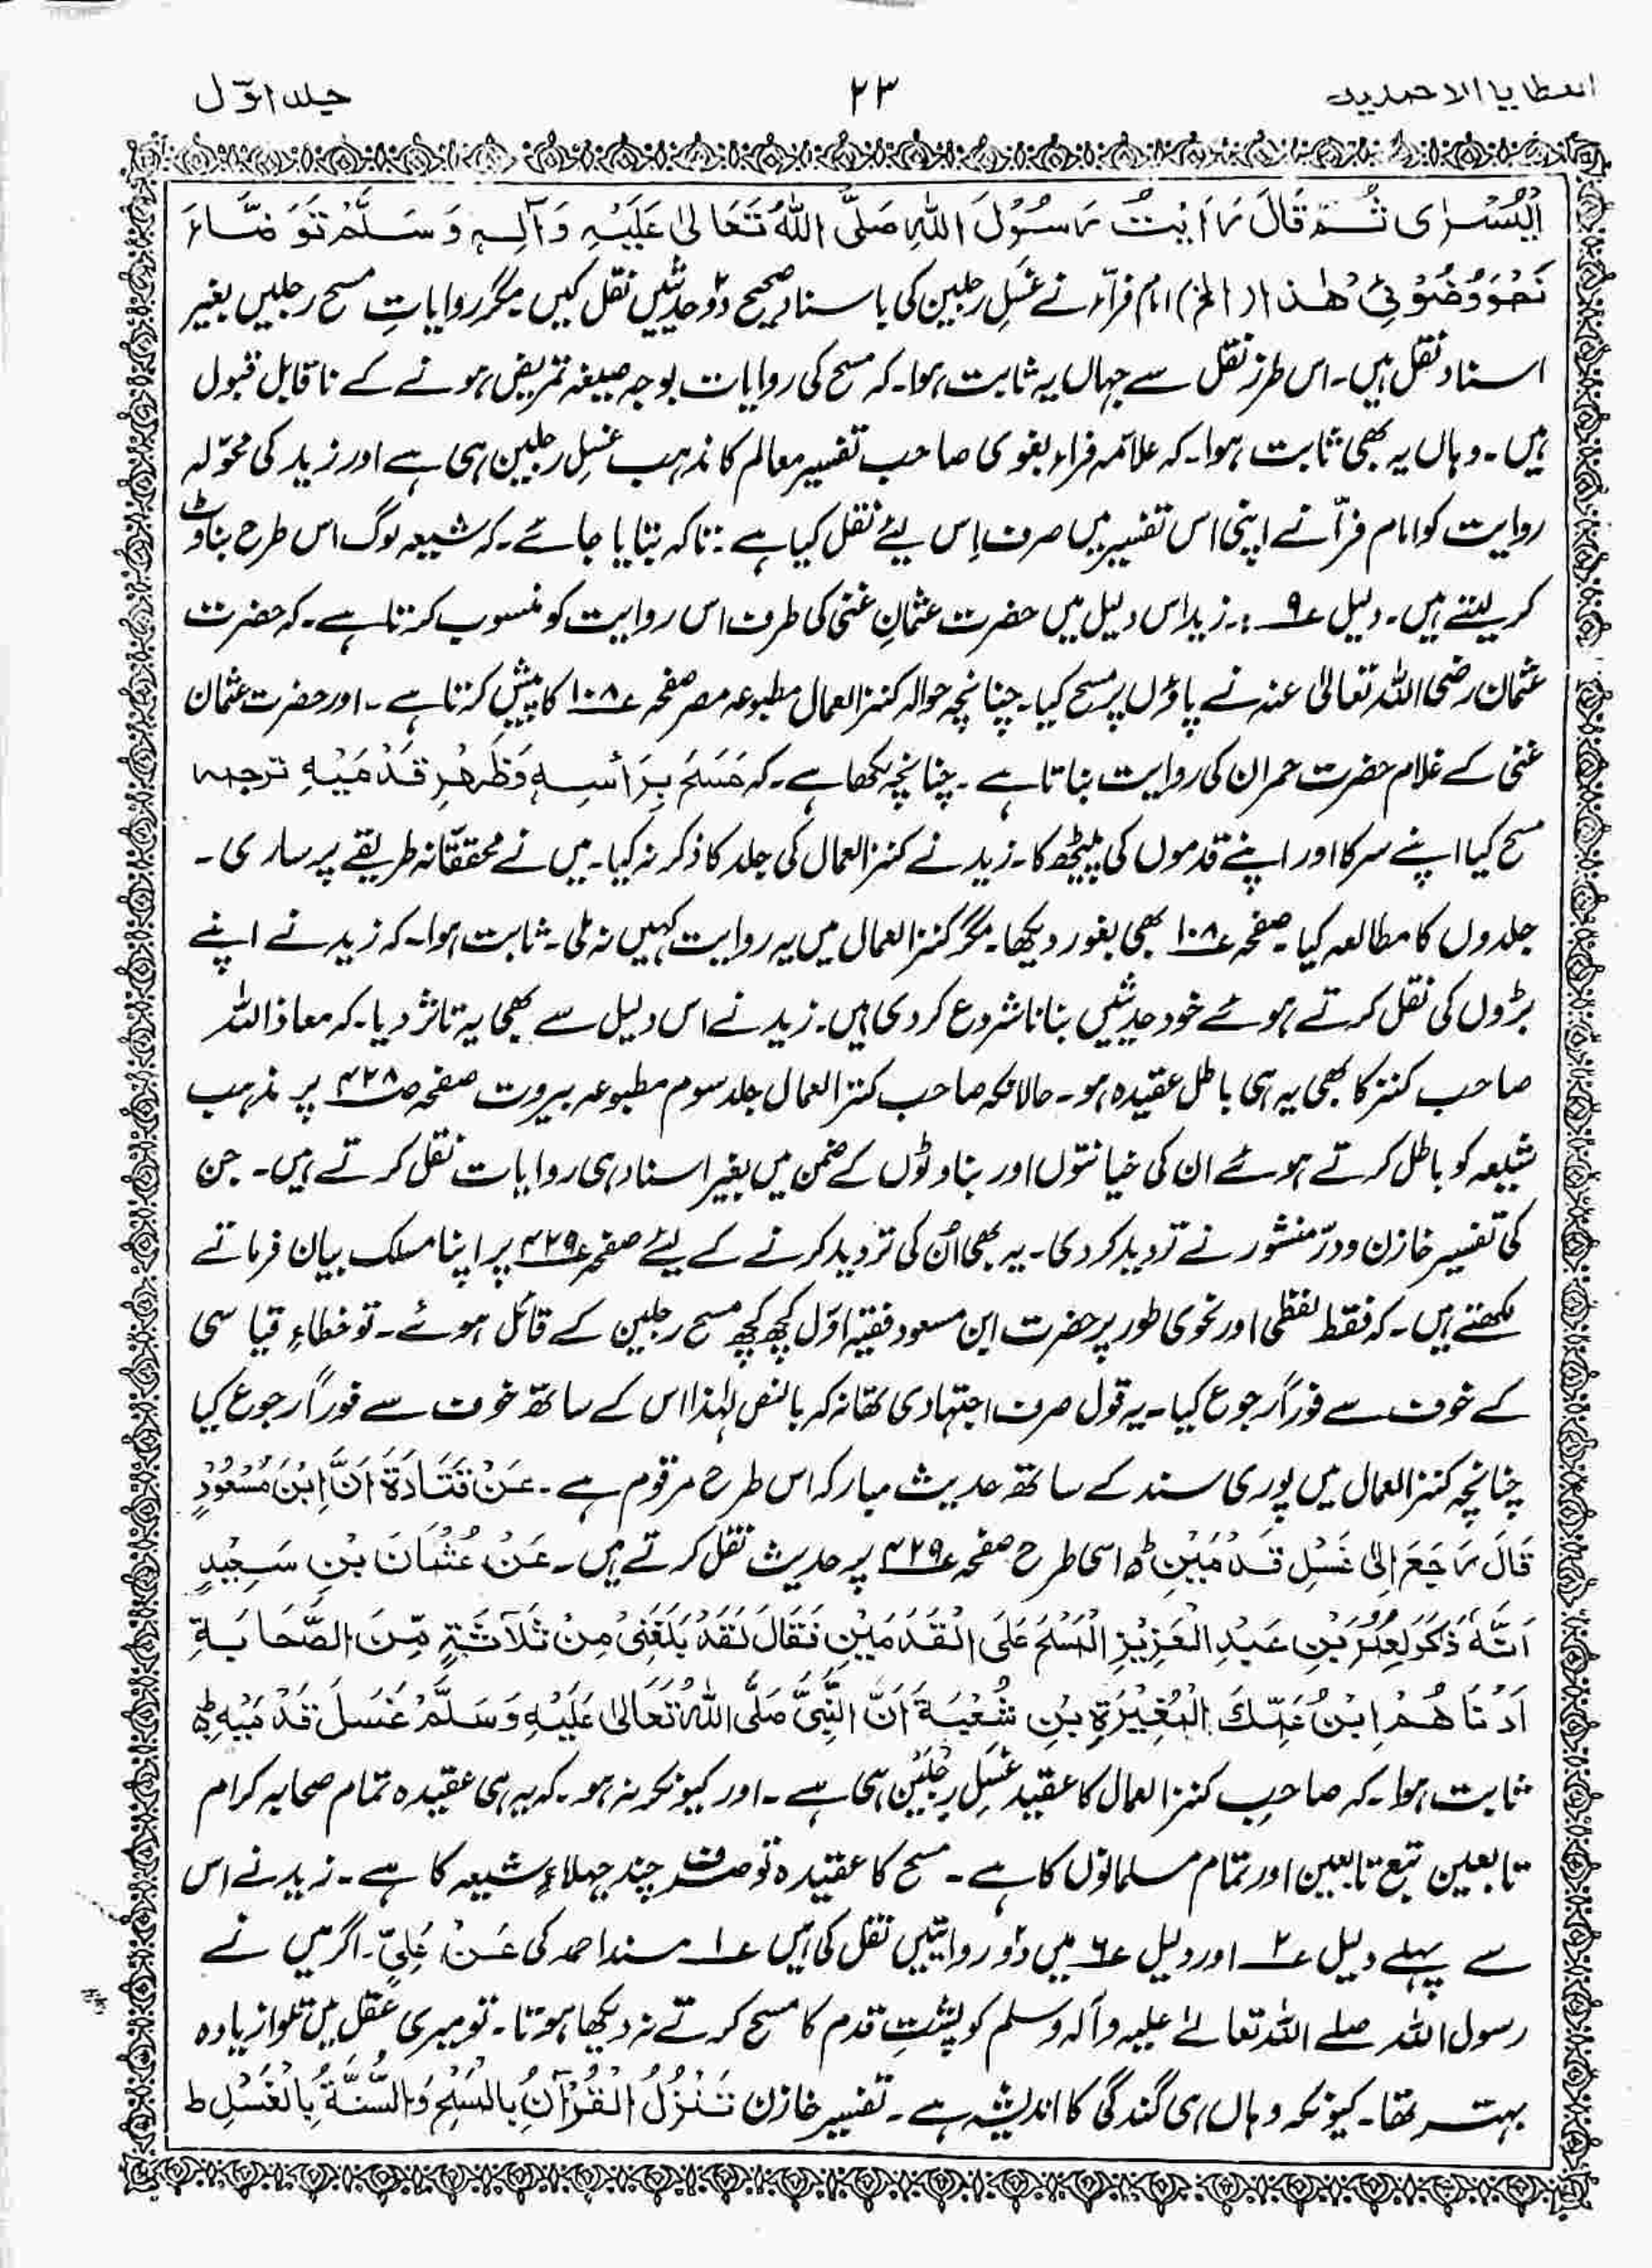 العطایا الاحمدیہ ۲۳ جلد اوّل
اَلْیُسْرٰی ثُمَّ قَالَ رَاَیْتُ رَسُوْلَ اللہِ صَلَّی اللہُ تَعَالٰی عَلَیْہِ وَآلِہٖ وَسَلَّمْ تَوَضَّاءَ
نَحْوَ وُضُوْئِیْ ھٰذَا (الخ) امام فرّاء نے غَسلِ رجلین کی باسناد صحیح دو۲ حدیثیں نقل کیں مگر روایاتِ مسح رجلیں بغیر
اسناد نقل ہیں۔ اس طرز نقل سے جہاں یہ ثابت ہوا۔ کہ مسح کی روایات بوجہ صیغہ تمریض ہونے کے ناقابل قبول
ہیں۔ وہاں یہ بھی ثابت ہوا۔ کہ علامہ فراء بغوی صاحب تفسیر معالم کا مذہب غسل رجلین ہی ہے اور زید کی محوّلہ
روایت کو امام فرّا نے اپنی اس تفسیر میں صرف اِس لیئے نقل کیا ہے : تاکہ بتایا جائے۔ کہ شیعہ لوگ اس طرح بناوٹ
کر لیتے ہیں۔ دلیل ع۹ :۔ زید اس دلیل میں حضرت عثمانِ غنی کی طرف اس روایت کو منسوب کرتا ہے۔ کہ حضرت
عثمان رضی اللہ تعالیٰ عنہ نے پاؤں پر مسح کیا۔ چنانچہ حوالہ کنز العمال مطبوعہ مصر صفحہ ع۱۰۸ کا پیش کرتا ہے۔ اور حضرت عثمان
غنی کے غلام حضرت حمران کی روایت بناتا ہے۔ چنانچہ لکھا ہے۔ کہ مَسَحَ بِرَأْسِہٖ وَظَہْرِ قَدْمَیْہِ ترجمہ
مسح کیا اپنے سر کا اور اپنے قدموں کی پیٹھ کا۔ زید نے کنز العمال کی جلد کا ذکر نہ کیا۔ میں نے محققانہ طریقے پر ساری۔
جلدوں کا مطالعہ کیا۔ صفحہ ع۱۰۸ بھی بغور دیکھا۔ مگر کنز العمال میں یہ روایت کہیں نہ ملی۔ ثابت ہوا۔ کہ زید نے اپنے
بڑوں کی نقل کرتے ہوئے خود حدیثیں بنانا شروع کر دی ہیں۔ زید نے اس دلیل سے بھی یہ تاثر دیا۔ کہ معاذ اللہ
صاحب کنز کا بھی یہ ہی باطل عقیدہ ہو۔ حالانکہ صاحب کنز العمال جلد سوم مطبوعہ بیروت صفحہ ص۴۲۸ پر مذہب
شیعہ کو باطل کرتے ہوئے ان کی خیانتوں اور بناوٹوں کے ضمن میں بغیر اسناد ہی روایات نقل کرتے ہیں۔ جن
کی تفسیر خازن و درّ منشور نے تردید کر دی۔ یہ بھی اُن کی تردید کرنے کے لیئے صفحہ ع۴۲۹ پر اپنا مسلک بیان فرماتے
لکھتے ہیں۔ کہ فقط لفظی اور نحوی طور پر حضرت ابن مسعود فقیہ اوّل کچھ کچھ مسح رجلین کے قائل ہوئے۔ تو خطاءِ قیاسی
کے خوف سے فوراً رجوع کیا۔ یہ قول صرف اجتہادی تھا نہ کہ بالنص لہٰذا اس کے ساتھ خوف سے فوراً رجوع کیا
چنانچہ کنز العمال میں پوری سند کے ساتھ حدیث مبارکہ اس طرح مرقوم ہے۔ عَنْ قَتَادَۃَ اَنَّ اِبْنَ مَسْعُوْدٍ
قَالَ رَجَعَ اِلٰی غَسْلِ قَدَمَیْنِ ط اسی طرح صفحہ ع۴۲۹ پر حدیث نقل کرتے ہیں۔ عَنْ عُثْمَانَ بْنِ سَعِیْدٍ
اَنَّہٗ ذَکَرَ لِعُمَرَ بْنِ عَبْدِ الْعَزِیْزِ الْمَسْحَ عَلَی الْقَدَمَیْنِ فَقَالَ لَقَدْ بَلَغَنِیْ مِنْ ثَلَاثَۃٍ مِّنَ الصَّحَابَۃِ
اَدْنَاھُمْ اِبْنُ عَمِّکَ الْمُغِیْرَۃِ بْنِ شُعْبَۃَ اَنَّ النَّبِیَّ صَلَّی اللہُ تَعَالٰی عَلَیْہِ وَسَلَّمْ غَسَلَ قَدْمَیْہِ ط
ثابت ہوا۔ کہ صاحبِ کنز العمال کا عقید غَسلِ رِجْلَیْن ہی ہے۔ اور کیونکر نہ ہو۔ کہ یہ ہی عقیدہ تمام صحابہ کرام
تابعین تبع تابعین اور تمام مسلمانوں کا ہے۔ مسح کا عقیدہ تو صرف چند جہلاءِ شیعہ کا ہے۔ زید نے اس
سے پہلے دلیل ع۲ اور دلیل ع۶ میں دو روایتیں نقل کی ہیں ع۱ مسند احمد کی عَنْ عَلِیٍّ۔ اگر میں نے
رسول اللہ صلے اللہ تعالےٰ علیہ وآلہ وسلم کو پشتِ قدم کا مسح کرتے نہ دیکھا ہوتا۔ تو میری عقل میں تلوا زیادہ
بہتر تھا۔ کیونکہ وہاں ہی گندگی کا اندیشہ ہے۔ تفسیر خازن تَنْزُلُ الْقُرْآنُ بِالْمَسْحِ وَالسُّنَّۃُ بِالْغَسْلِ ط